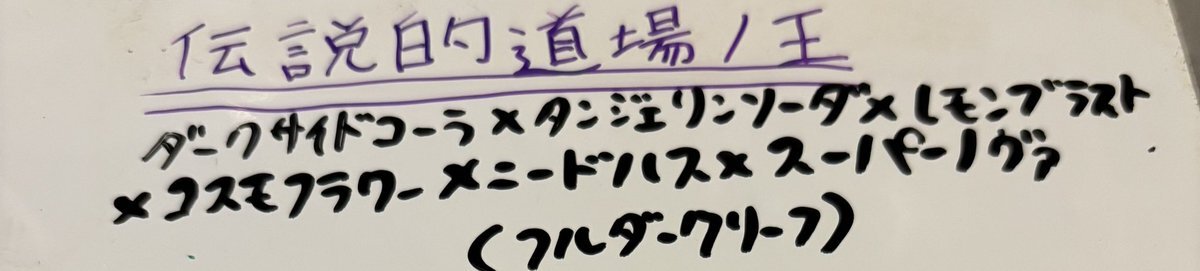 伝説的道場ノ王
ダークサイドコーラ×タンジェリンソーダ×レモンブラスト
×コスモフラワー×ニードハス×スーパーノヴァ
(フルダークリーフ)